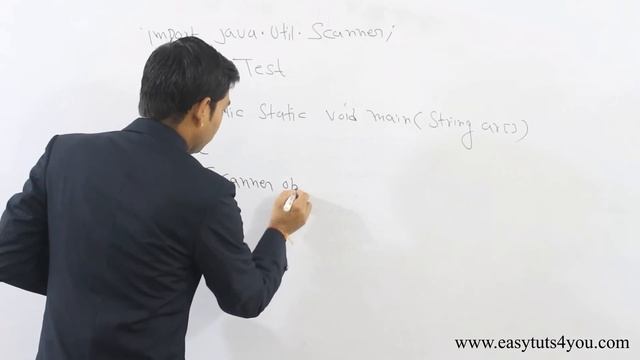 import java.util.Scanner;
Test
lic Static void main(String ar[])
canner ob
www.easytuts4you.com